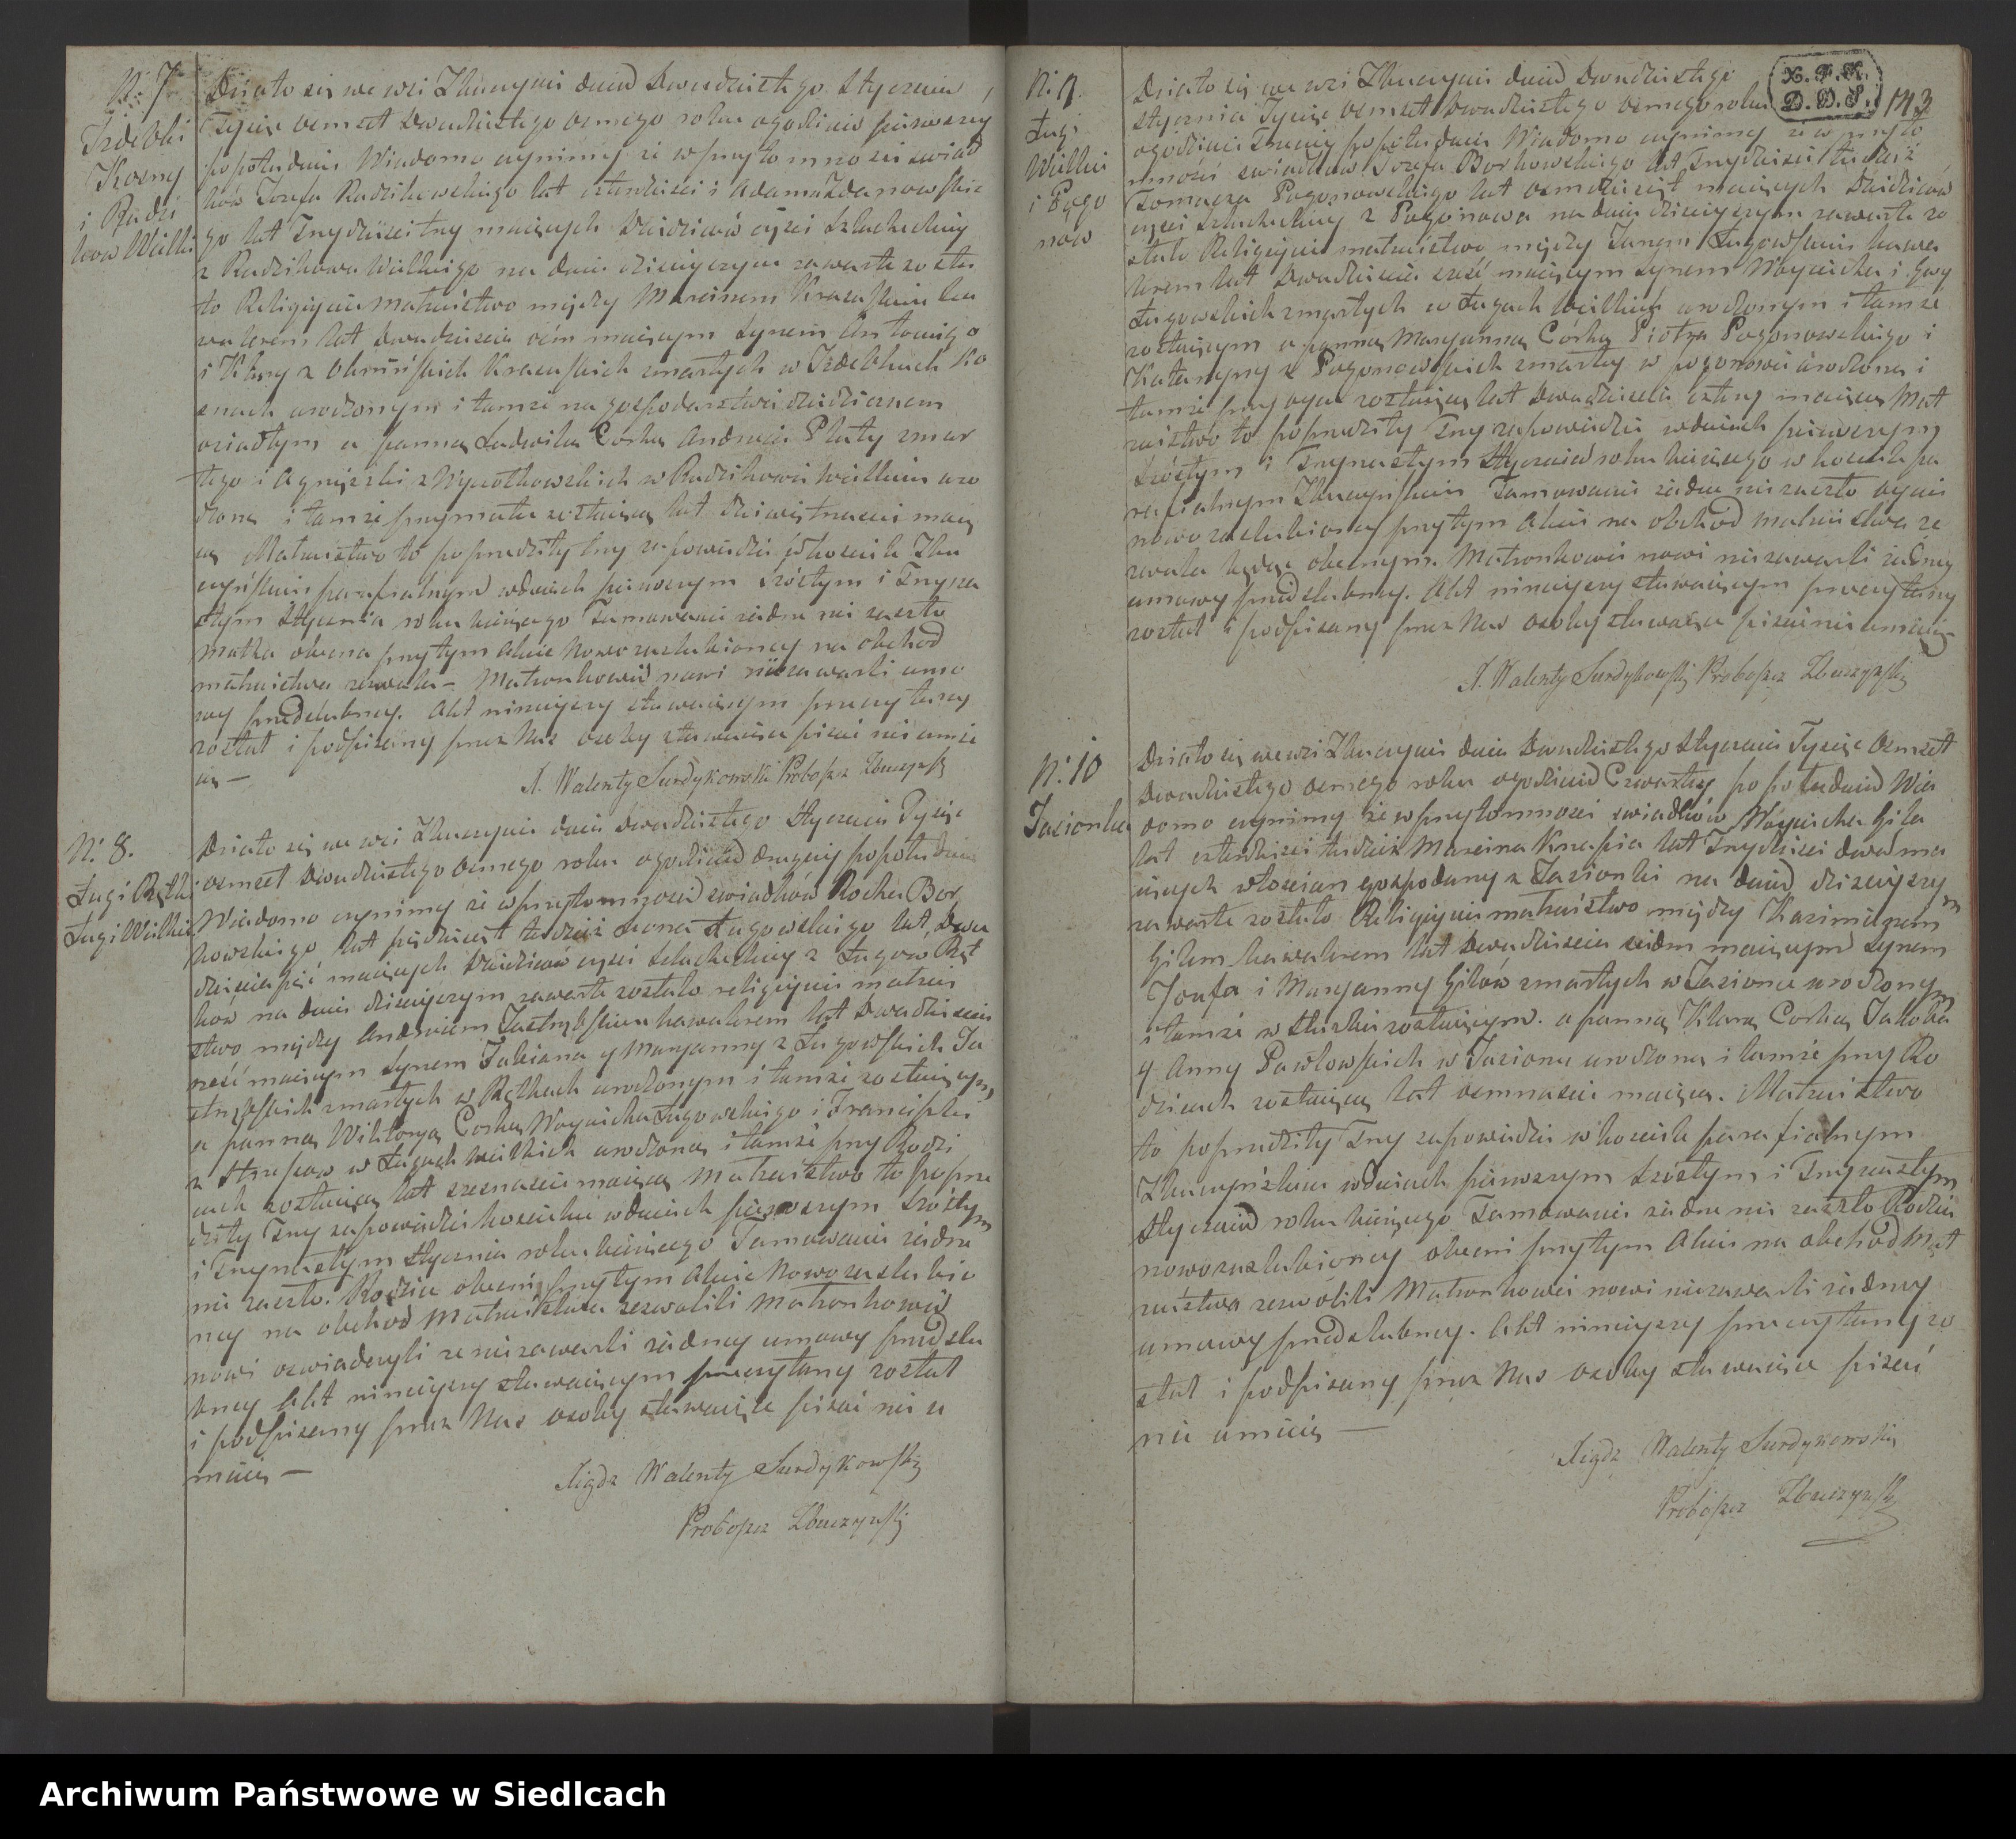 N: 7
Izdebki
Kosny
i Radzi
kow Wielki
Działo się we wsi Zbuczynie dnia Dwudziestego Stycznia
Tysiąc osmset Dwudziestego osmego roku o godzinie pierwszey
popołudniu Wiadomo czynimy że w przytomności świad
ków Jozefa Radzikowskiego lat czterdzieści i Adama Zdanowskie
go lat Trzydzieści trzy maiących Dziedziców części Szlacheckiey
z Radzikowa Wielkiego na dniu dzisieyszym zawarte zosta
ło Religijnie Małżeństwo między Marcinem Krasuskim ka
walerem lat dwadzieścia ośm maiącym Synem Antoniego
i Klary z Oknińskich Krasuskich zmarłych w Izdebkach Ko
snach urodzonym i tamże na gospodarstwie dziedzicznem
osiadłym a panną Ludwiką Córką Andrzeia Płuty zmar
łego i Agnieszki z Wyrozkowskich w Radzikowie Wielkim uro
dzoną i tamże przy matce zostaiącą lat dziewiętnaście maią
cą Małżeństwo to poprzedziły trzy zapowiedzi w kościele Zbu
czyńskim parafialnym w dniach pierwszym szóstym i Trzyna
stym Stycznia roku bieżącego Tamowanie żadne nie zaszło
matka obecna przytym akcie Nowo zaślubioney na obchód
małżeństwa zezwala – Małżonkowie nowi niezawarli umo
wy przedślubney. Akt ninieyszy stawaiącym przeczytany
został i podpisany przez Nas osoby stawaiące pisać nie umie
ią –
X. Walenty Surdykowski Proboszcz Zbuczyński
N: 8.
Ługi Rętki
Ługi Wielkie
Działo się we wsi Zbuczynie dnia dwudziestego Stycznia Tysiąc
osmset Dwudziestego Osmego roku o godzinie drugiey popołudniu
Wiadomo czynimy że w przytomności świadków Rocha Bor
kowskiego lat pięćdziesiąt tudzież Leona Ługowskiego lat Dwa
dzieścia pięć maiących Dziedziców części szlacheckiey z Ługow Ręt
ków na dniu dzisieyszym zawarte zostało religijnie małżeń
stwo między Andrzeiem Jastrzębskim kawalerem lat Dwadzieścia
sześć maiącym Synem Fabiana y Maryanny z Ługowskich Ja
strzębskich zmarłych w Rętkach urodzonym i tamże zostaiącym
a panną Wiktoryą Corką Woyciecha Ługowskiego i Franciszki
w Ługach wielkich urodzoną i tamże przy Rodzi
cach zostaiącą lat szesnaście maiącą Małżeństwo to poprze
dziły Trzy zapowiedzi kościelne w dniach pierwszym szóstym
i Trzynastym Stycznia roku bieżącego Tamowanie żadne
nie zaszło. Rodzice obecni przytym Akcie Nowo zaślubio
ney na obchód Małżeństwa zezwolili Małżonkowie
nowi oświadczyli że niezawarli żadney umowy przedślu
bney Akt ninieyszy stawaiącym przeczytany został
i podpisany przez Nas osoby stawaiące pisać nie u
mieią –
Xiądz Walenty Surdykowski
Proboszcz Zbuczyński
X. P. K.
D. D. S.
143
N: 9.
Ługi
Wielkie
i Pogo
now
Działo się we wsi Zbuczynie dnia Dwudziestego
Stycznia Tysiąc osmset Dwudziestego osmego roku
o godzinie Trzeciey popołudniu Wiadomo czynimy że w przyto
mności świadków Jozefa Borkowskiego lat Trzydzieści tudzież
Tomasza Pogonowskiego lat osmdziesiąt maiących Dziedziców
części Szlacheckiey z Pogonowa na dniu dzisieyszym zawarte zo
stało Religijnie małżeństwo między Janem Ługowskim kawa
lerem lat Dwadzieścia sześć maiącym Synem Woyciecha i Ewy
Ługowskich zmarłych w Ługach Wielkich urodzonym i tamże
zostaiącym a panną Maryanną Córką Piotra Pogonowskiego i
Katarzyny z Pogonowskich zmarłey w pogonowie urodzoną i
tamże przy oycu zostaiącą lat Dwadzieścia cztery maiącą Mał
żeństwo to poprzedziły Trzy zapowiedzi w dniach pierwszym
Szóstym i Trzynastym Stycznia roku bieżącego w kościele pa
rafialnym Zbuczyńskim Tamowanie żadne nie zaszło oyciec
nowo zaślubioney przytym Akcie na obchód małżeństwa ze
zwala będąc obecnym. Małżonkowie nowi niezawarli żadney
umowy przedślubney. Akt ninieyszy stawaiącym przeczytany
został i podpisany przez Nas osoby stawaiące pisać nie umieią
X. Walenty Surdykowski Proboszcz Zbuczyński
N: 10
Jasionka
Działo się we wsi Zbuczynie dnia Dwudziestego Stycznia Tysiąc Osmset
Dwudziestego osmego roku o godzinie Czwartey po południu Wia
domo czynimy że w przytomności świadków Woyciecha Gila
lat czterdzieści tudzież Marcina Knapia lat Trzydzieści dwa ma
iących włościan gospodarzy z Jasionki na dniu dzisieyszym
zawarte zostało Religijnie małżeństwo między Kazimierzem
Gilem kawalerem lat Dwadzieścia siedm maiącym Synem
Jozefa i Maryanny Gilów zmarłych w Jasionce urodzonym
i tamże w służbie zostaiącym. a panną Klarą Corką Jakoba
y Anny Pawłowskich w Jasionce urodzoną i tamże przy Ro
dzicach zostaiącą lat osmnaście maiącą. Małżeństwo
to poprzedziły Trzy zapowiedzi w kościele parafialnym
Zbuczyńskim w dniach pierwszym szóstym i Trzynastym
Stycznia roku bieżącego Tamowanie żadne nie zaszło Rodzice
nowo zaślubioney obecni przytym Akcie na obchód Mał
żeństwa zezwolili Małżonkowie nowi niezawarli żadney
umowy przedślubney. Akt ninieyszy przeczytany zo
stał i podpisany przez Nas osoby stawaiące pisać
nie umieią –
Xiądz Walenty Surdykowski
Proboszcz Zbuczyński
Archiwum Państwowe w Siedlcach